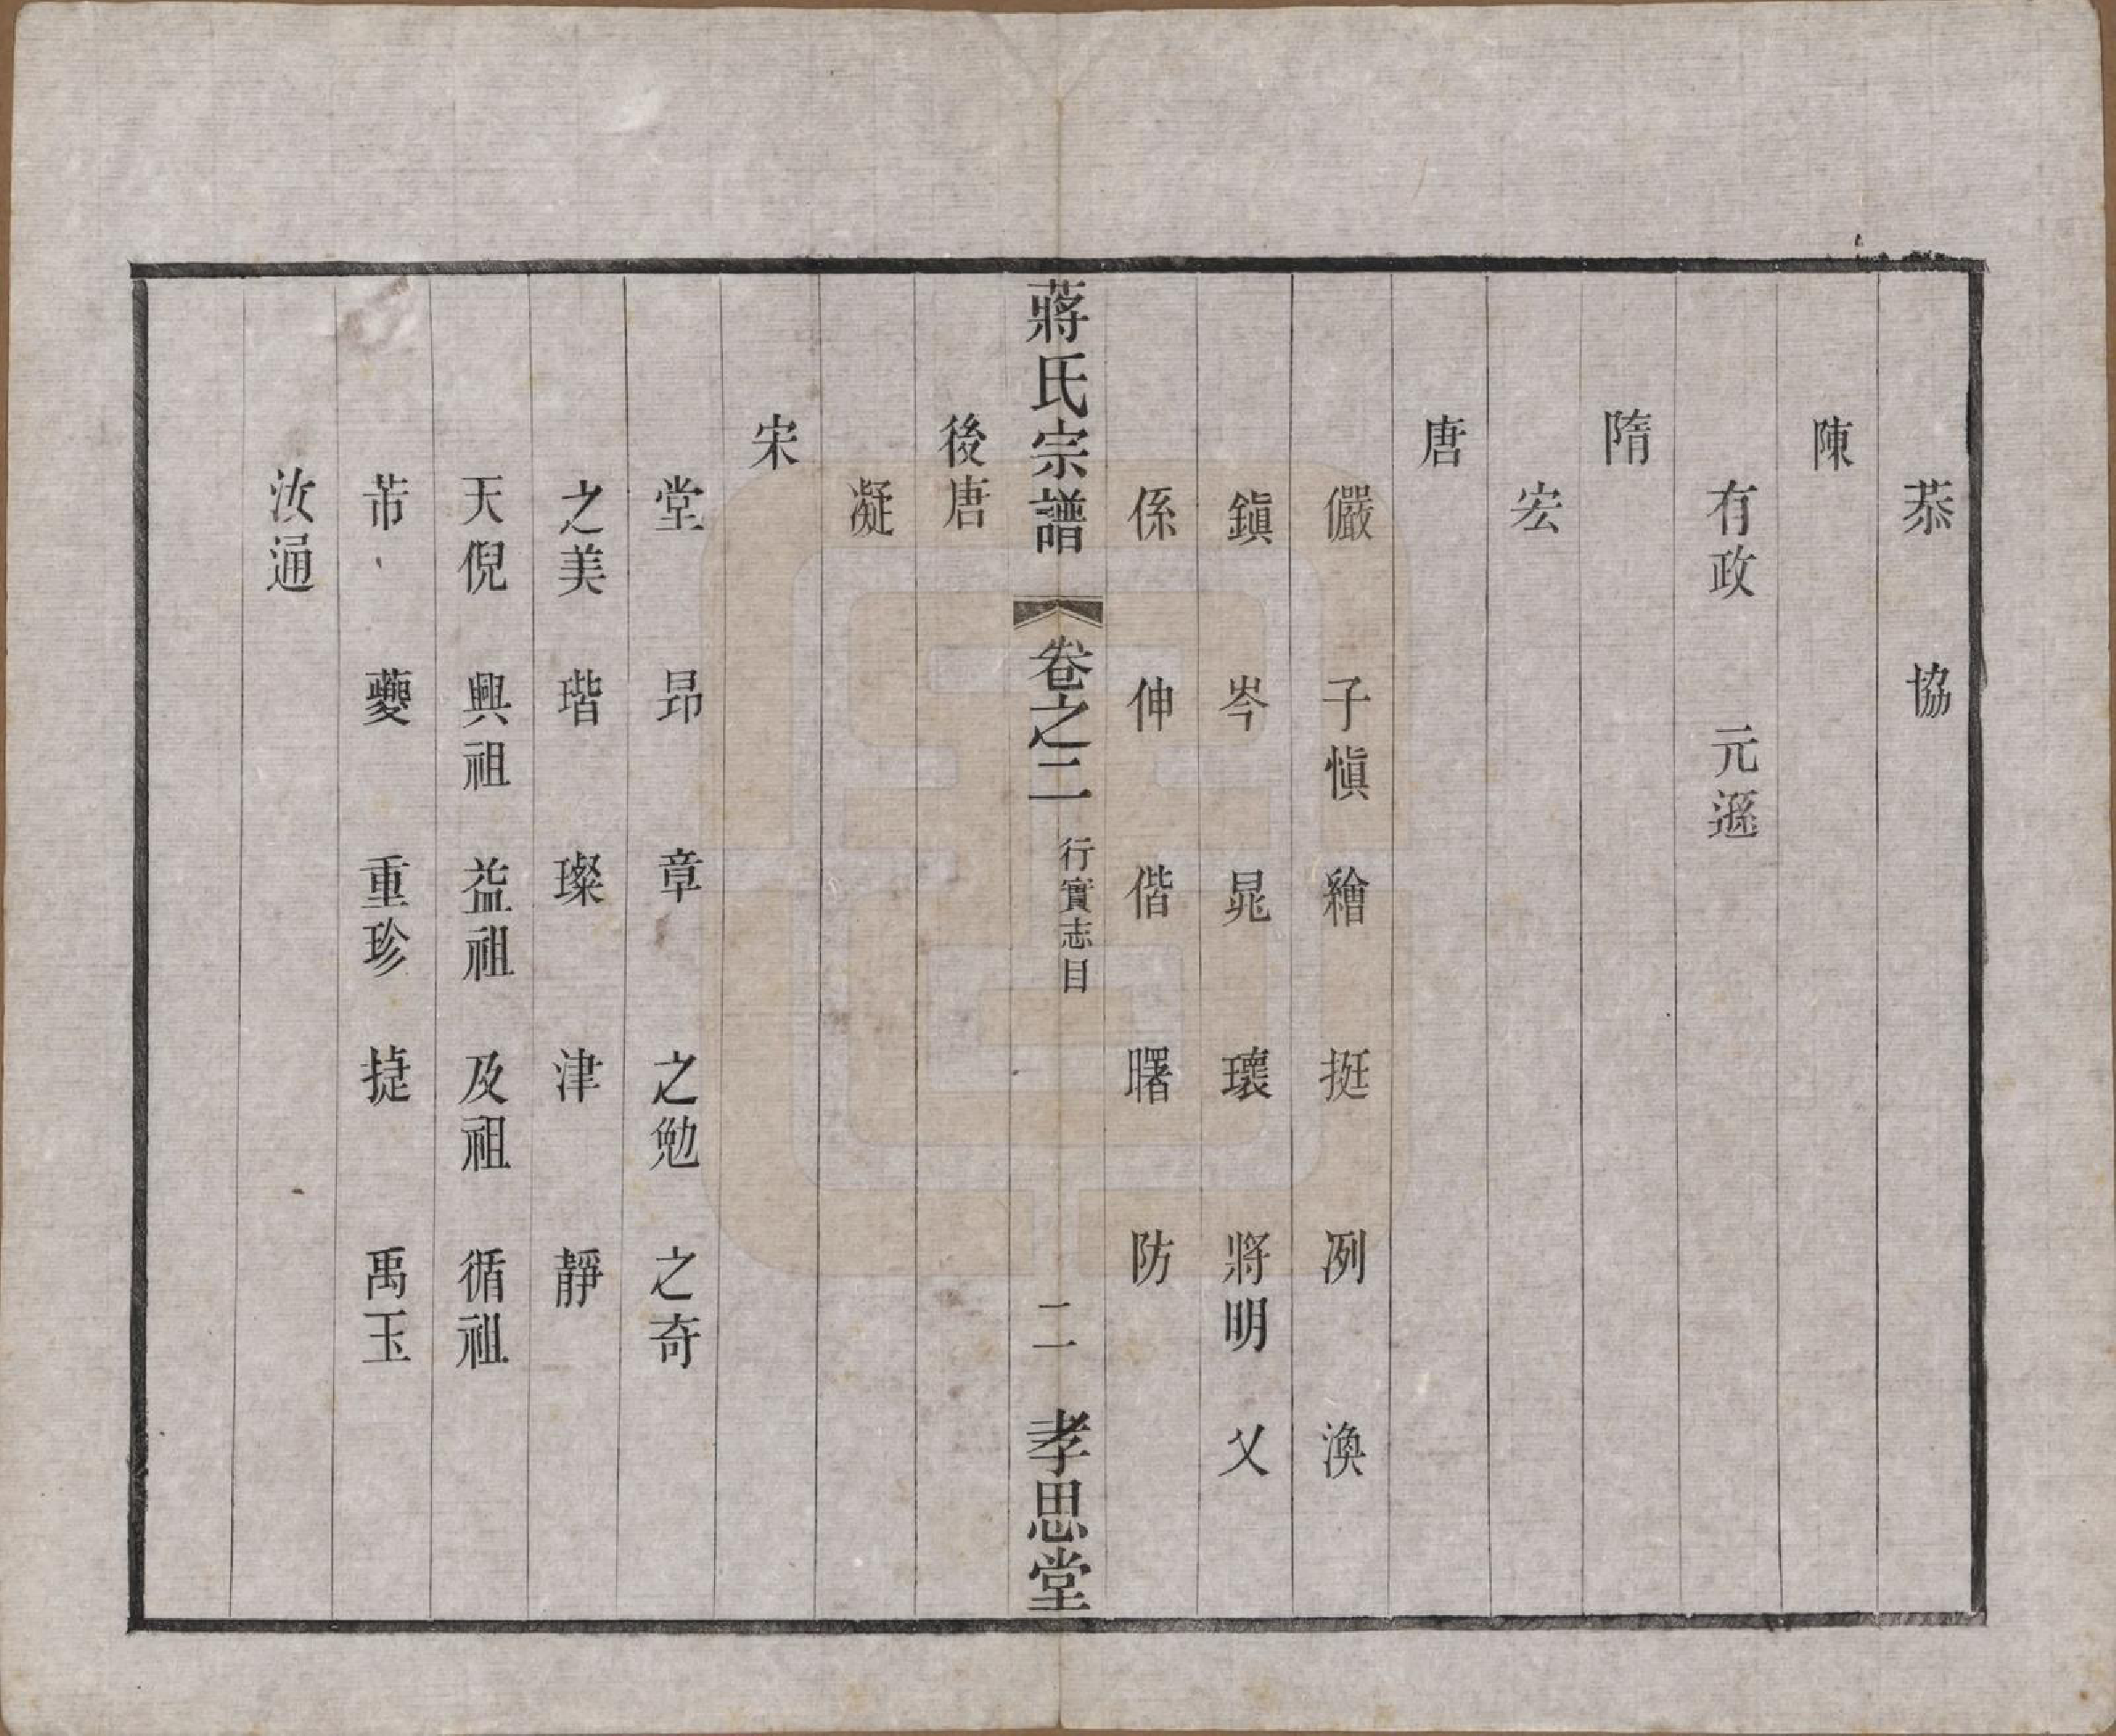 恭　協
陳
有政　元遜
隋
宏
唐
儼　子愼　繪　挺　冽　渙
鎭　岑　晁　瓌　將明　乂
係　伸　偕　曙　防
蔣氏宗譜　卷之二　行實志目　二　孝思堂
後唐
凝
宋
堂　昂　章　之勉　之奇
之美　瑎　璨　津　靜
天倪　興祖　益祖　及祖　循祖
芾　夔　重珍　捷　禹玉
汝通